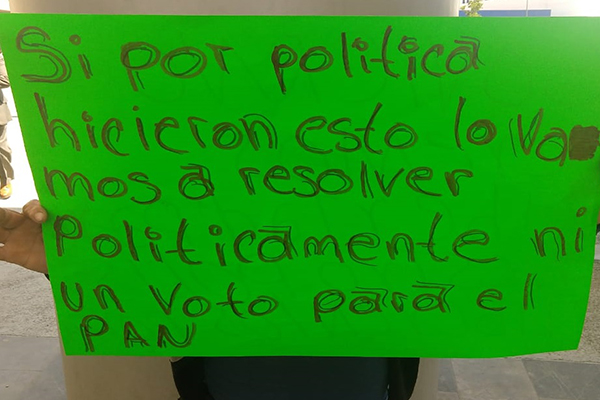 Si por politica
hicieron esto lo va
mos a resolver
Politicamente ni
un voto para el
PAN